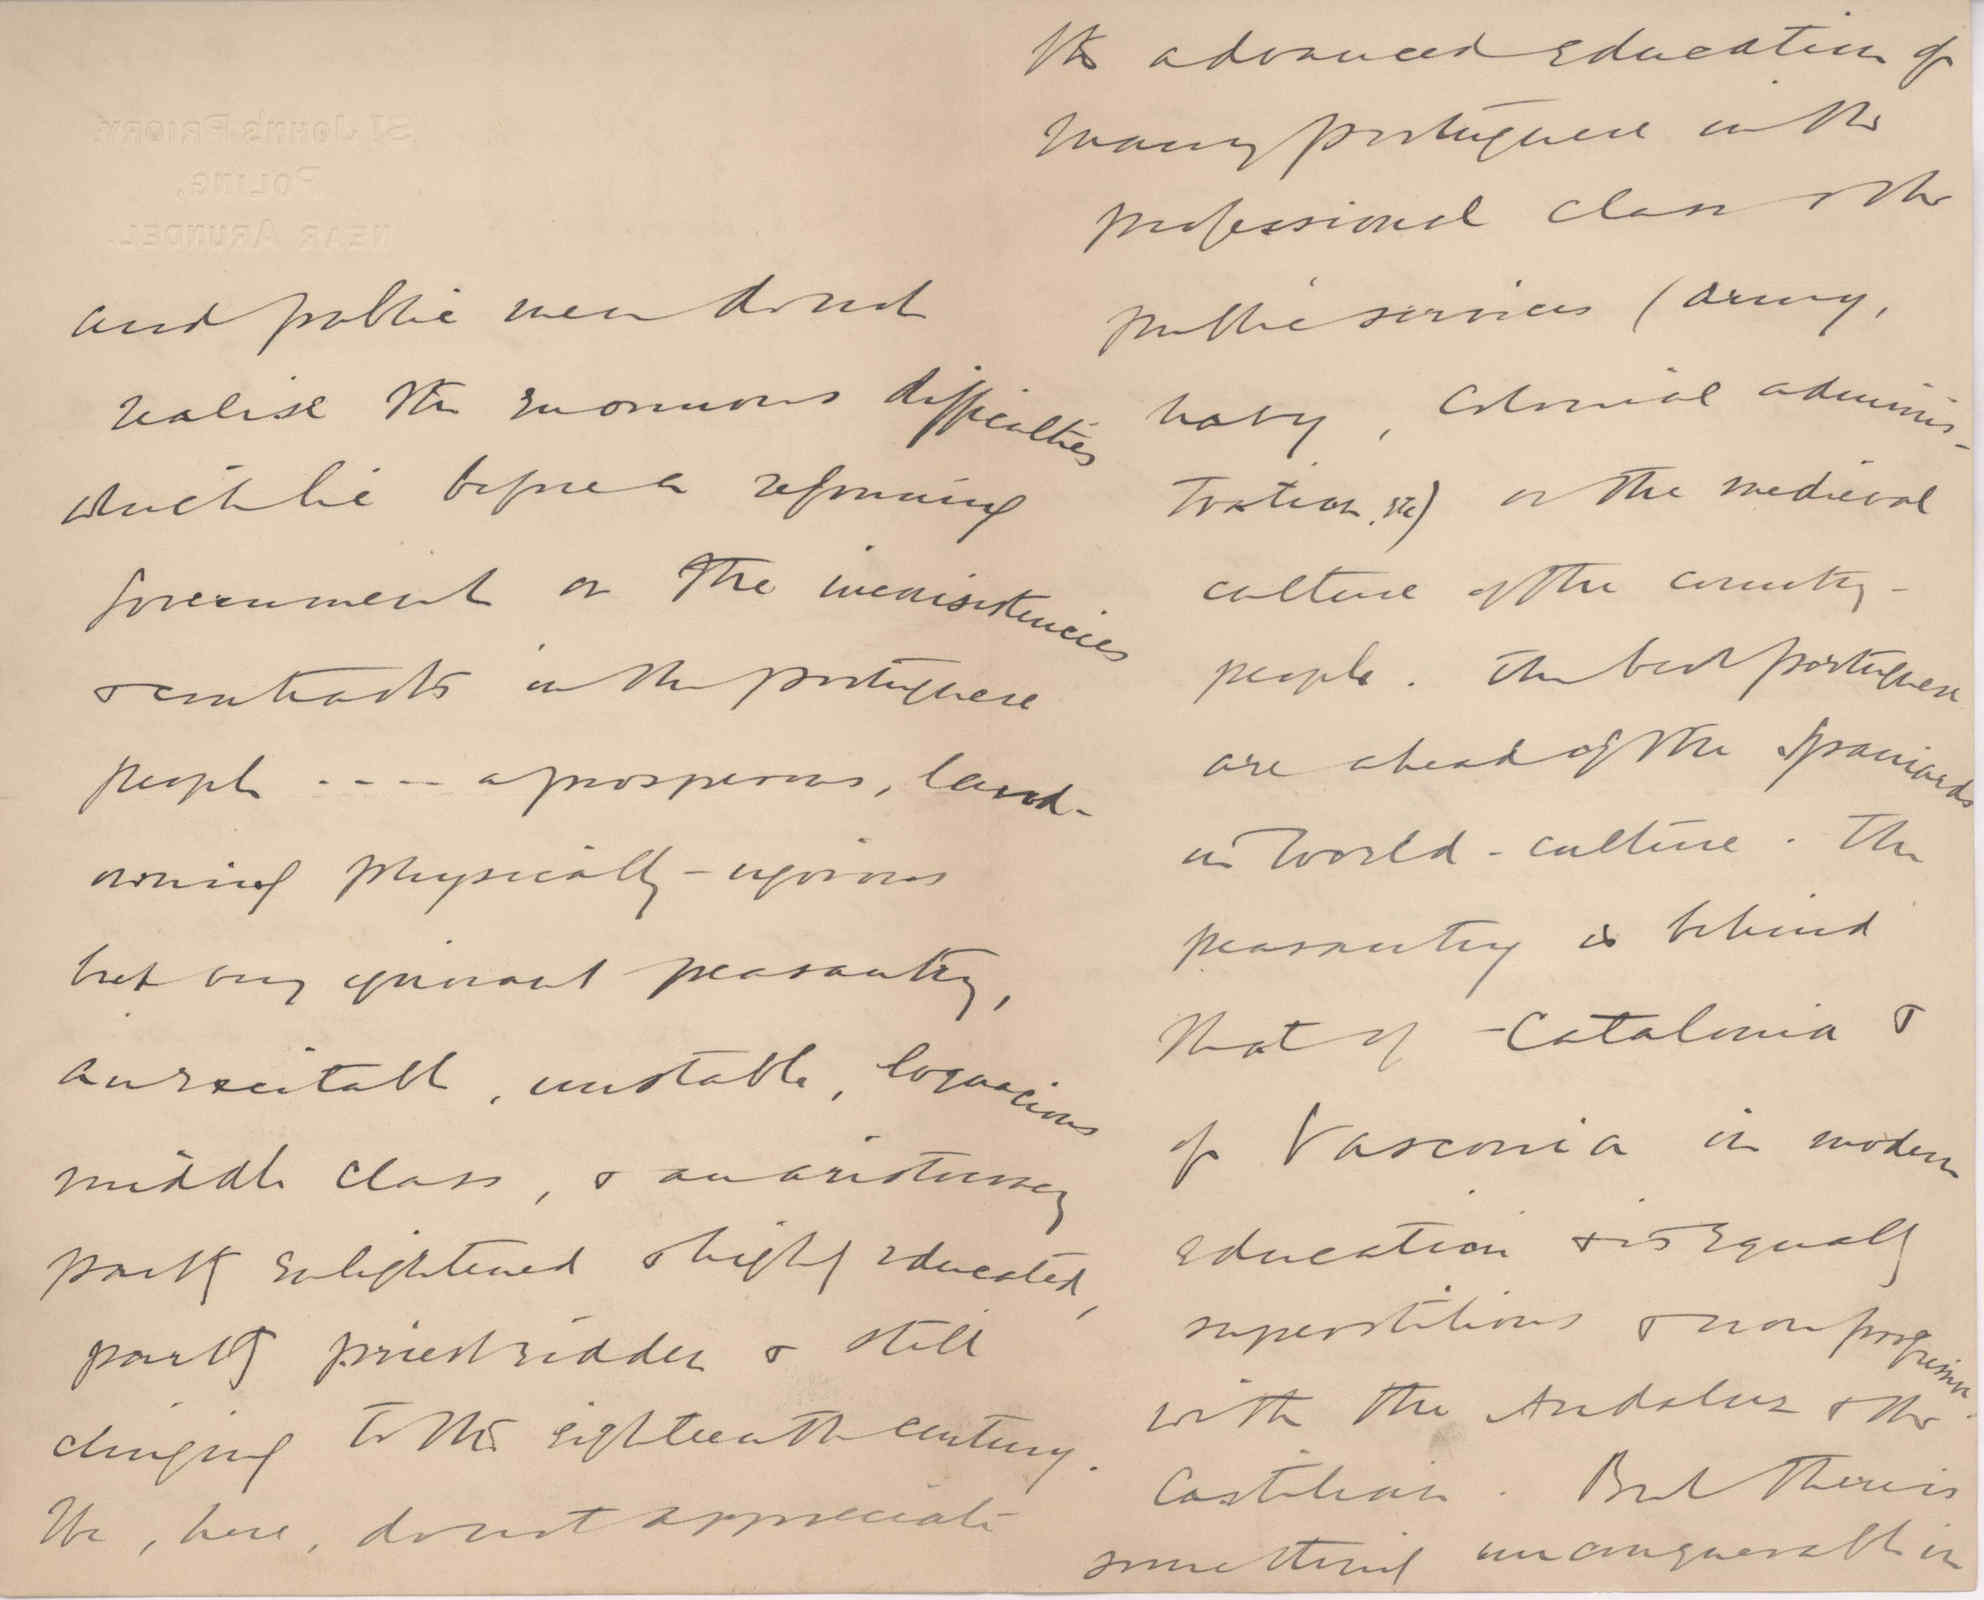 St John's Priory,
Poling,
near Arundel.
and public men do not
realise the enormous difficulties
which lie before a reforming
Government or the inconsistencies
& contrasts in the Portuguese
people .... a prosperous, land-
owning physically-vigorous
but very ignorant peasantry,
an excitable, unstable, loquacious
middle class, & an aristocracy
partly enlightened & highly educated,
partly priestridden & still
clinging to the eighteenth century.
We, here, do not appreciate
the advanced education of
many Portuguese in the
professional class & the
public services (Army,
navy, Colonial adminis-
tration, etc) or the medieval
culture of the country-
people. The best Portuguese
are ahead of the Spaniards
in world-culture. The
peasantry is behind
that of Catalonia &
of Vasconia in modern
education & is equally
superstitious & nonprogressive
with the Andaluz & the
Castilian. But there is
something unconquerable in